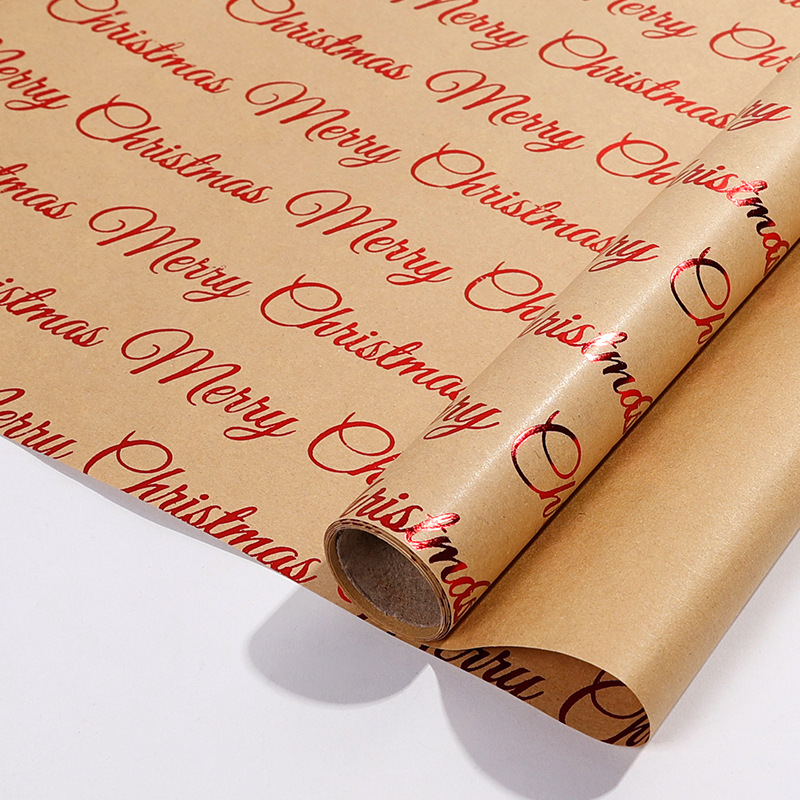 Christmas Merry Christmas
Christmas Merry Christmas
Merry Christmas Merry Christmas
Christmas Merry Christmas
Merry Christmas Merry Christmas
Merry Christmas
Merry Christmas